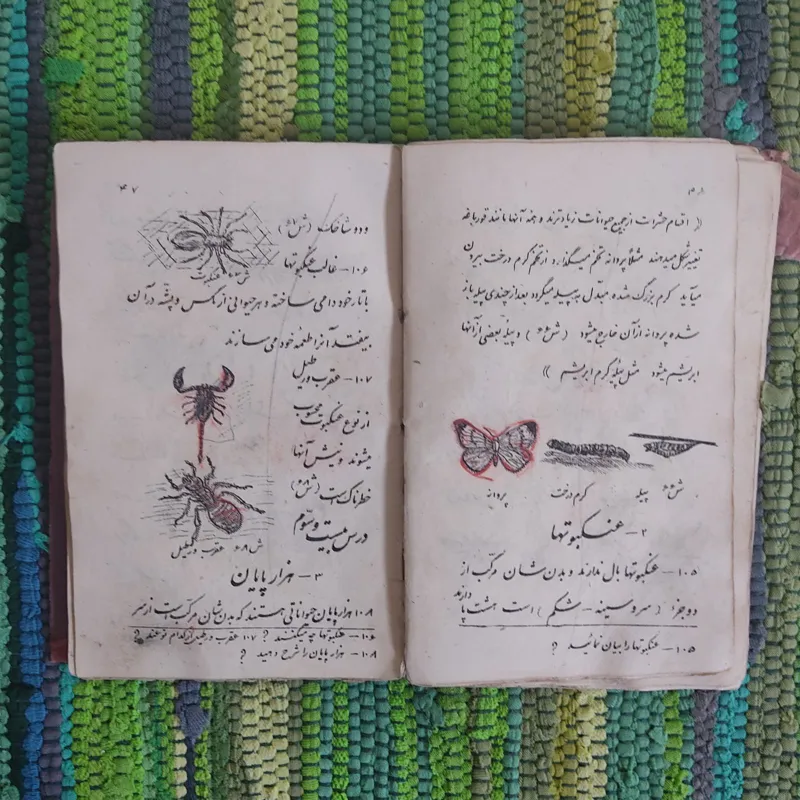 (( اقسام حشرات از جمیع حیوانات زیادترند و همه آنها مانند قورباغه
تغییر شکل میدهند مثلاً پروانه تخم میگذارد از تخم کرم درخت بیرون
میآید کرم بزرگ شده مبدل به پیله میگردد بعد از چندی پیله باز
شده پروانه از آن خارج میشود ( ش ۶۶ ) و پیله بعضی از آنها
ابریشم میشود مثل پیله کرم ابریشم ))
ش ۶۶ پیله کرم درخت پروانه
۲ – عنکبوتها
۱۰۵ – عنکبوتها بال ندارند و بدنشان مرکب از
دو جزء ( سر و سینه – شکم ) است هشت پا دارند
۱۰۵ – عنکبوتها را بیان نمائید ؟
۴۷
و دو شاخک ( ش ۶۷ )
ش ۶۷ عنکبوت
۱۰۶ – غالب عنکبوتها
با تار خود دامی ساخته و هر حیوانی از مگس و پشه در آن
بیفتد آنرا طعمه خود می سازند
۱۰۷ – عقرب و رطیل
از نوع عنکبوت محسوب
میشوند و نیش آنها
خطرناک است ( ش ۶۸ )
ش ۶۸ عقرب و رطیل
درس بیست و سوم
۳ – هزار پایان
۱۰۸ هزار پایان حیواناتی هستند که بدنشان مرکب است از سر
۱۰۶ – عنکبوتها چه میکنند ؟ ۱۰۷ عقرب و رطیل از کدام نوعند ؟
۱۰۸ – هزار پایان را شرح دهید ؟